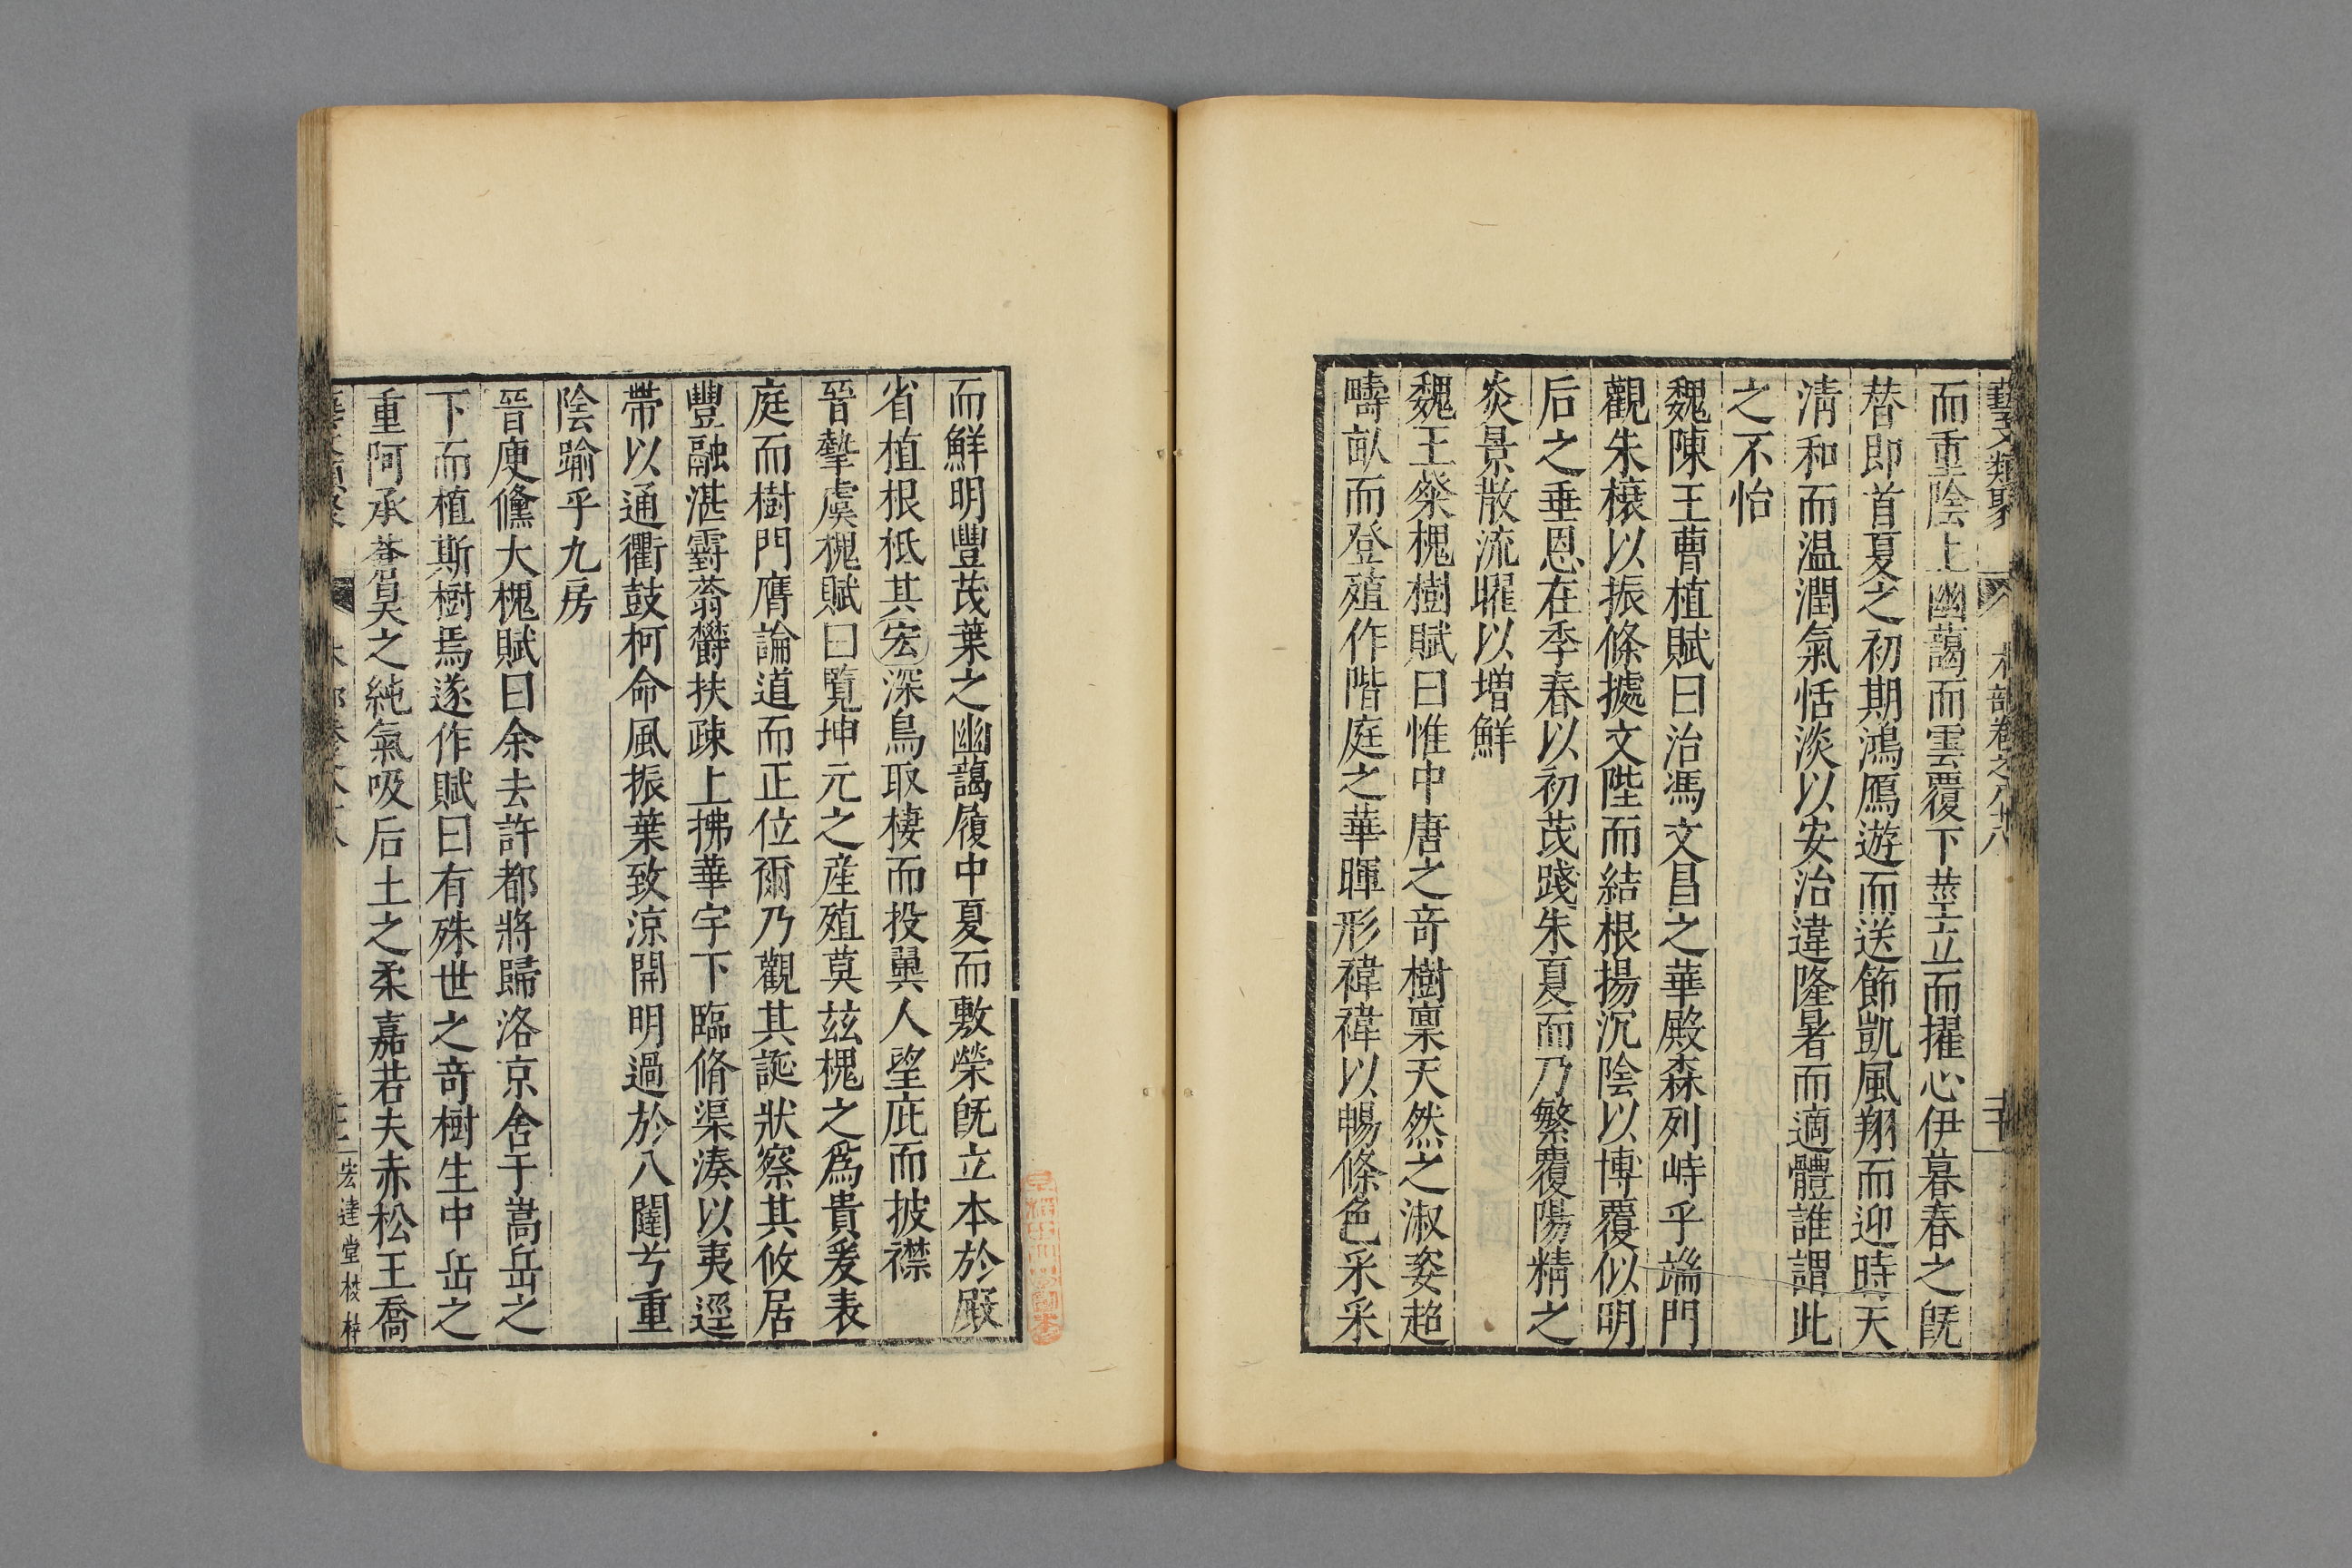 藝文類聚 木部卷之八十八
而重陰上幽藹而雲覆下莖立而擢心伊暮春之既
替即首夏之初期鴻鴈遊而送節凱風翔而迎時天
清和而温潤氣恬淡以安治違隆暑而適體誰謂此
之不怡
魏陳王曹植賦曰治馮文昌之華殿森列峙乎端門
觀朱榱以振條據文陛而結根揚沉陰以博覆似明
后之垂恩在季春以初茂踐朱夏而乃繁覆陽精之
炎景散流曜以增鮮
魏王粲槐樹賦曰惟中唐之奇樹禀天然之淑姿超
疇畝而登殖作階庭之華暉形褘褘以暢條色采采
而鮮明豐茂葉之幽藹履中夏而敷榮既立本於殿
省植根柢其宏深鳥取棲而投翼人望庇而披襟
晉摯虞槐賦曰覽坤元之産殖莫兹槐之爲貴爰表
庭而樹門膺論道而正位爾乃觀其誕狀察其攸居
豐融湛霨蓊鬱扶疎上拂華宇下臨脩渠湊以夷逕
帶以通衢鼓柯命風振葉致涼開明過於八闥兮重
陰踰乎九房
晉庾儵大槐賦曰余去許都將歸洛京舍于嵩岳之
下而植斯樹焉遂作賦曰有殊世之奇樹生中岳之
重阿承蒼昊之純氣吸后土之柔嘉若夫赤松王喬
宏達堂梭梓